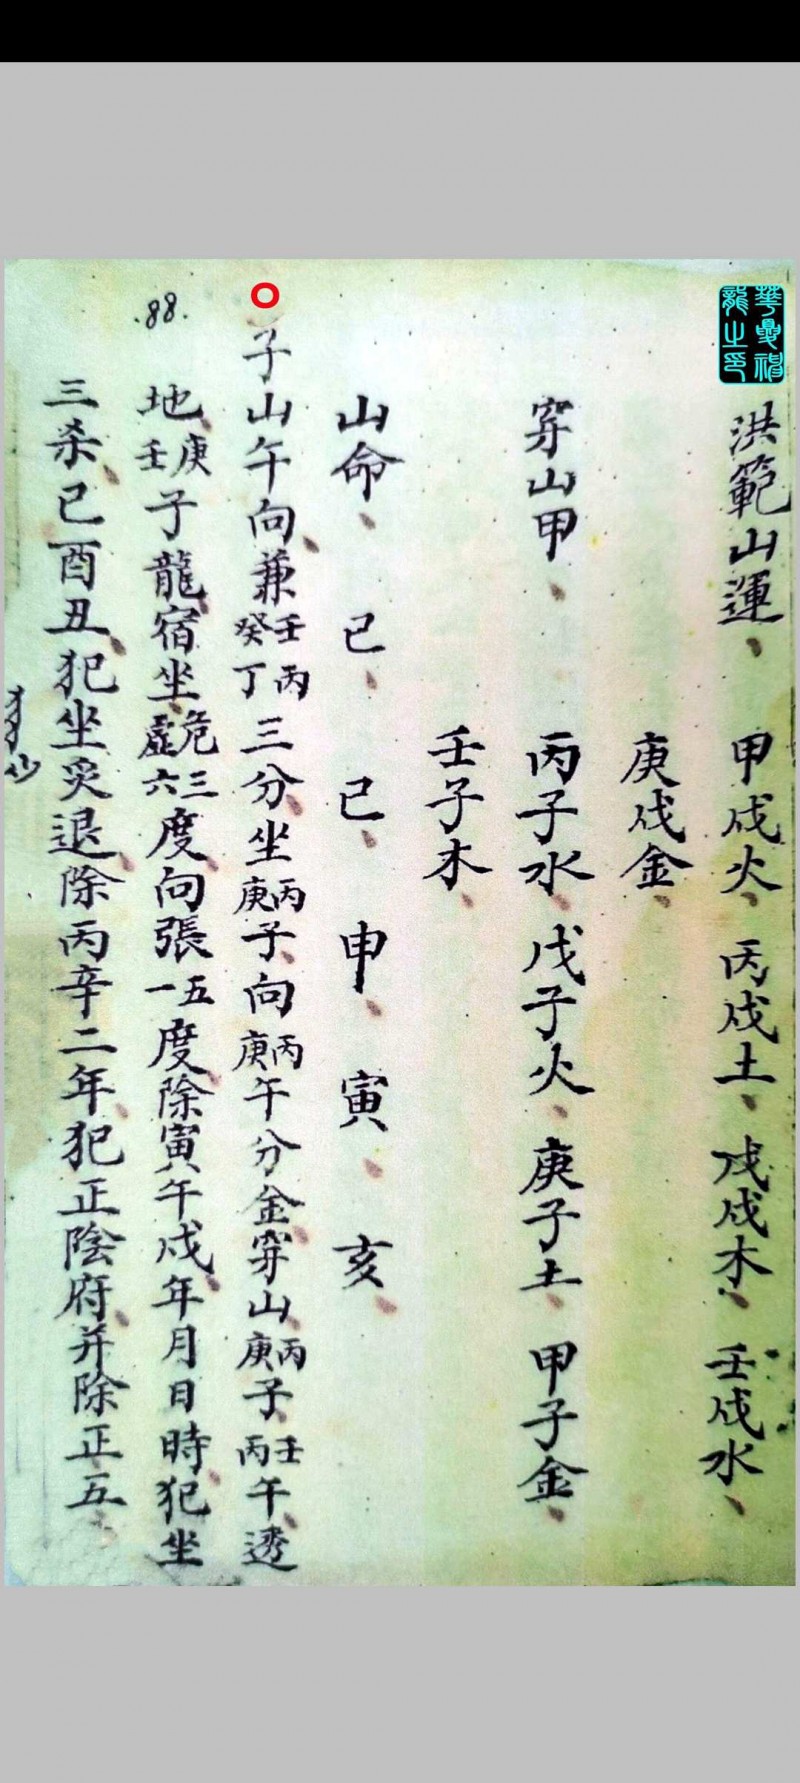 洪範山運、甲戌火、丙戌土、戊戌木、壬戌水、
庚戌金、
穿山甲、丙子水、戊子火、庚子土、甲子金、
壬子木、
山命、己、己、申、寅、亥、
子山午向、兼壬丙癸丁三分、坐丙庚子、向丙庚午分金、穿山丙庚子、壬丙午、透
88.
地、庚壬子龍、宿坐、危三虛六度、向張五一度、除寅午戌、年月日時、犯坐
三杀、巳酉丑、犯坐灸退、除丙辛二年、犯正陰府、并除正五、